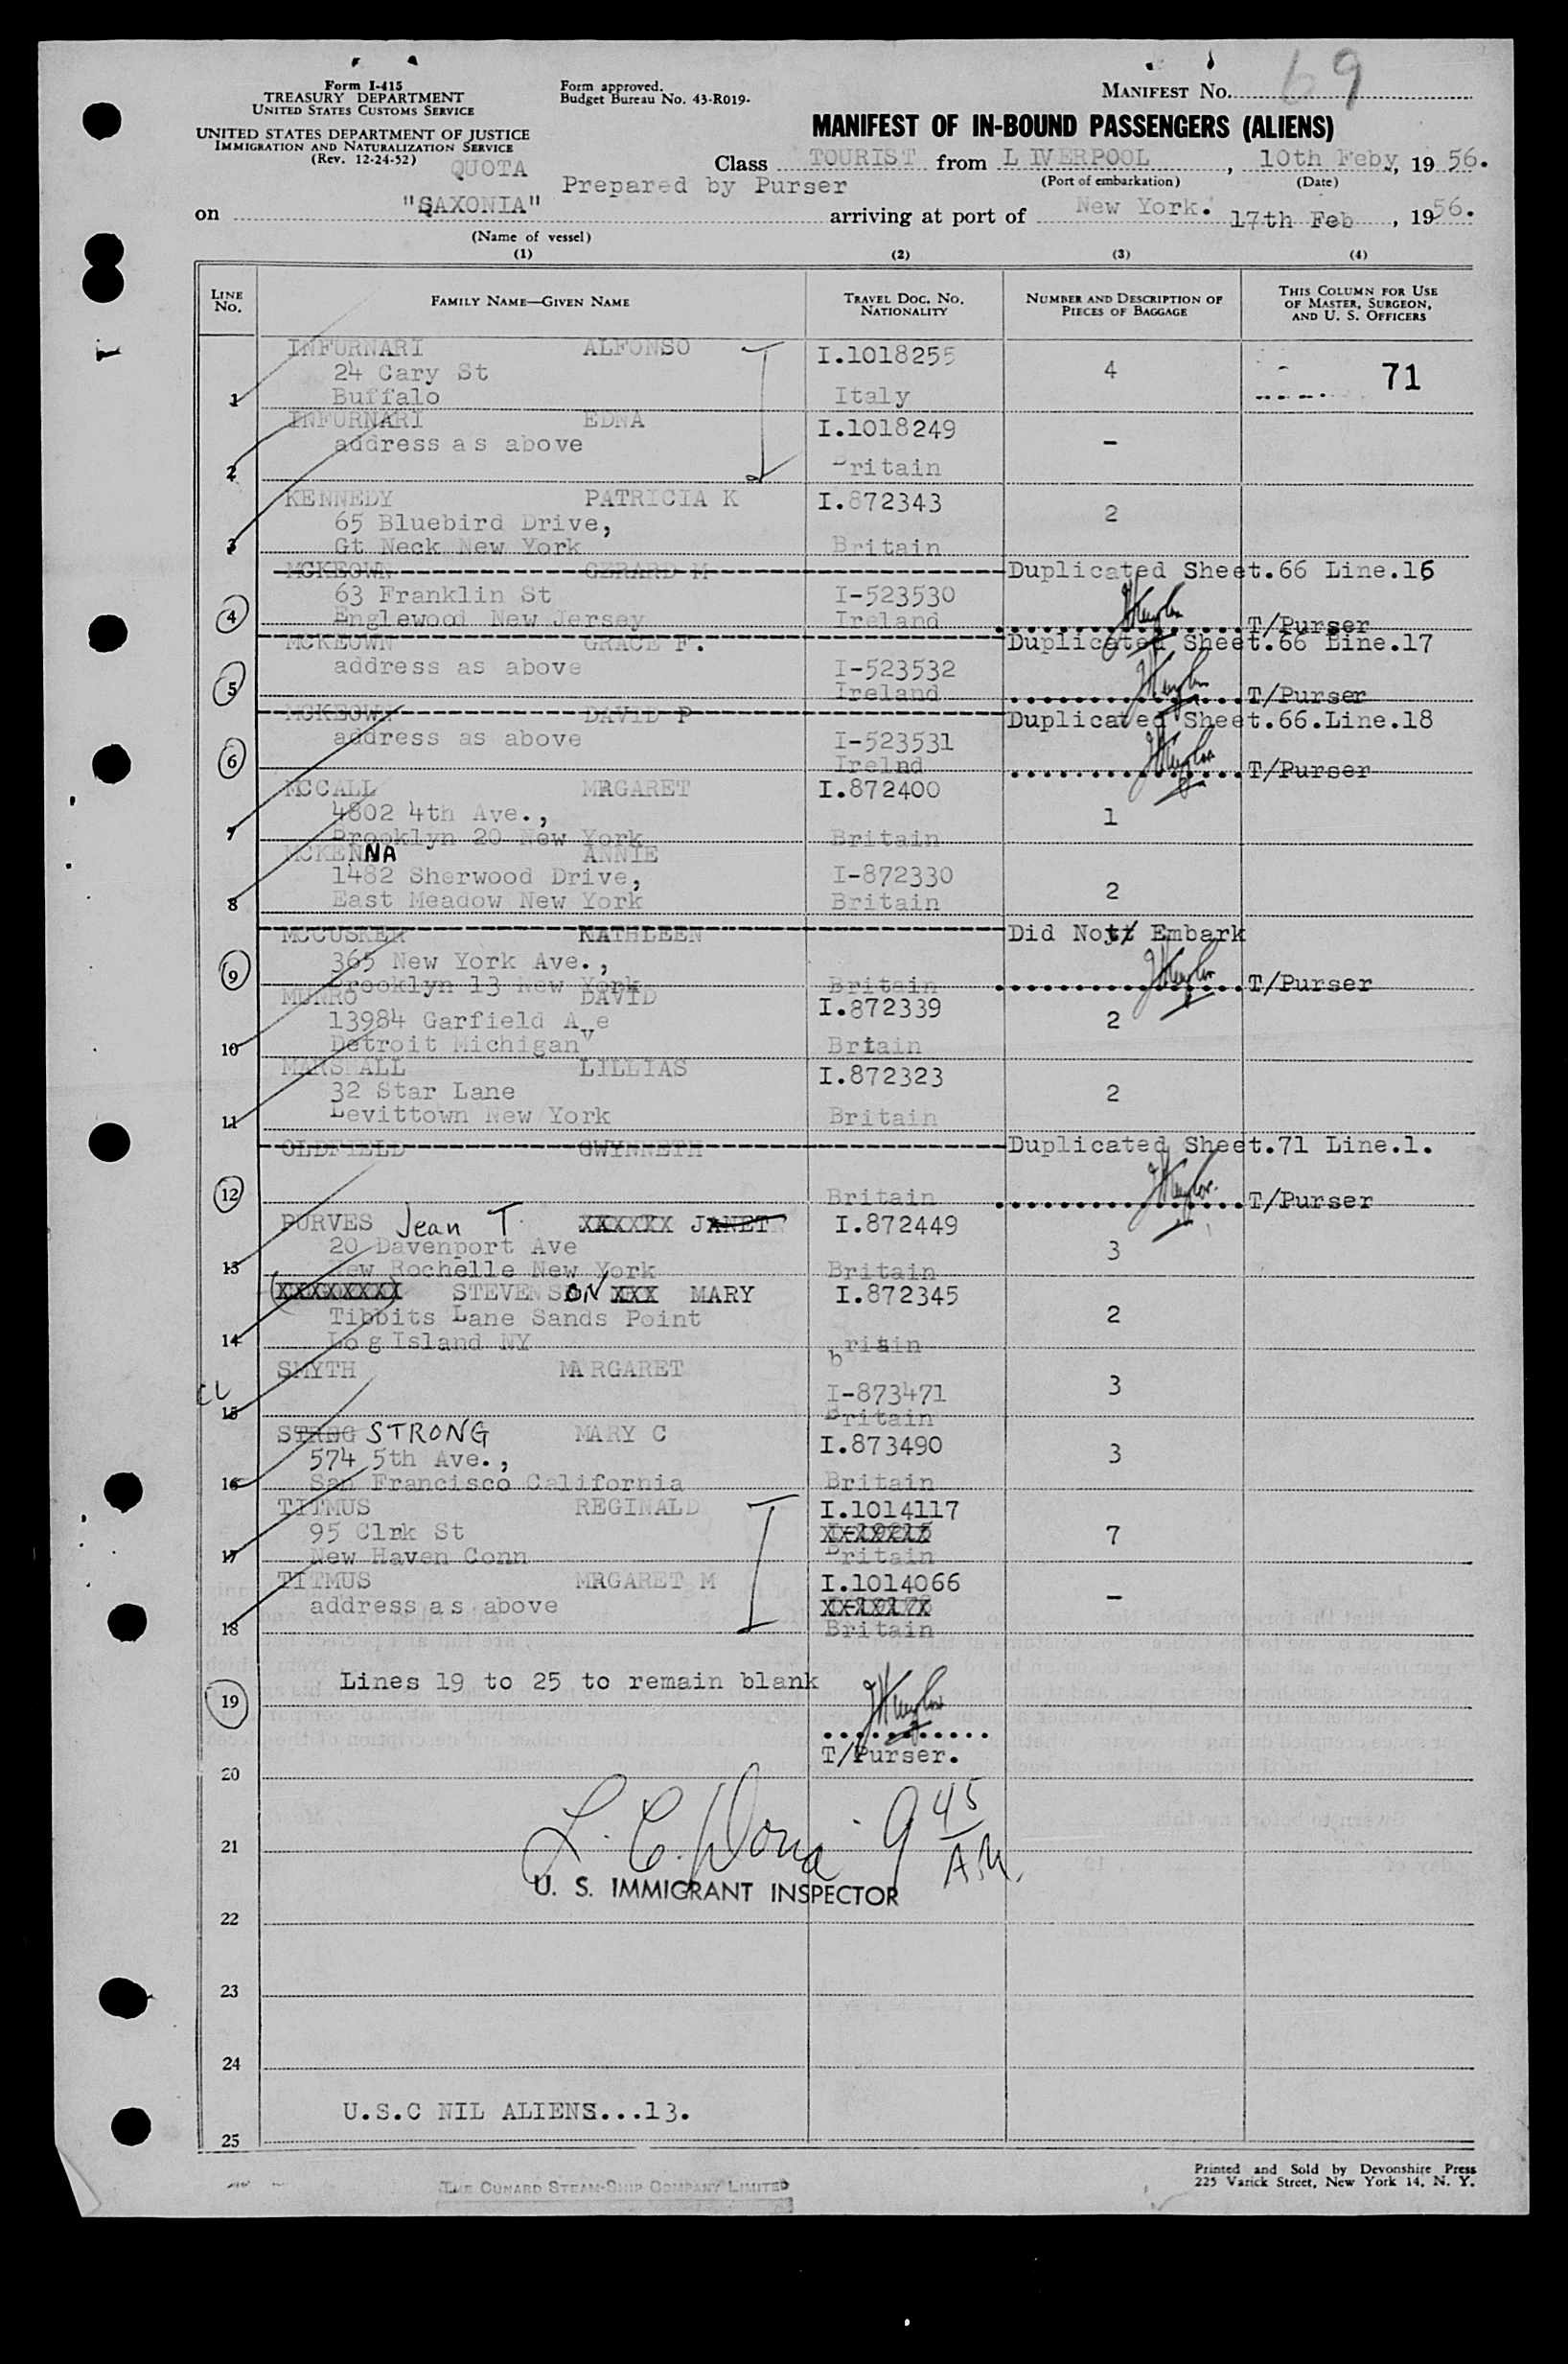 69
Form I-415
TREASURY DEPARTMENT
UNITED STATES CUSTOMS SERVICE
Form approved.
Budget Bureau No. 43-R019.
MANIFEST NO.
UNITED STATES DEPARTMENT OF JUSTICE
IMMIGRATION AND NATURALIZATION SERVICE
(Rev. 12-24-52)
MANIFEST OF IN-BOUND PASSENGERS (ALIENS)
QUOTA
Class TOURIST from LIVERPOOL, 10th Feby, 19 56.
Prepared by Purser
(Port of embarkation) (Date)
on "SAXONIA" arriving at port of New York. 17th Feb, 19 56.
(Name of vessel)
(1) (2) (3) (4)
LINE NO.
FAMILY NAME—GIVEN NAME
TRAVEL DOC. NO. NATIONALITY
NUMBER AND DESCRIPTION OF PIECES OF BAGGAGE
THIS COLUMN FOR USE OF MASTER, SURGEON, AND U. S. OFFICERS
INFURNARI ALFONSO I.1018255
24 Cary St 4 71
1 Buffalo Italy
INFURNARI EDNA I.1018249
address as above -
2 Britain
KENNEDY PATRICIA K I.872343
65 Bluebird Drive, 2
3 Gt Neck New York Britain
MCKEOWN GERARD M Duplicated Sheet.66 Line.16
63 Franklin St I-523530
4 Englewood New Jersey Ireland T/Purser
MCKEOWN GRACE F. Duplicated Sheet.66 Line.17
address as above I-523532
5 Ireland T/Purser
MCKEOWN DAVID P Duplicated Sheet.66.Line.18
address as above I-523531
6 Irelnd T/Purser
MCCALL MRGARET I.872400
4802 4th Ave., 1
7 Brooklyn 20 New York Britain
MCKENNA ANNIE
1482 Sherwood Drive, I-872330
8 East Meadow New York Britain 2
MCCUSKER KATHLEEN Did Not Embark
365 New York Ave.,
9 Brooklyn 13 New York Britain T/Purser
MUNRO DAVID I.872339
13984 Garfield Ave 2
10 Detroit Michigan Britain
MARSHALL LILLIAS I.872323
32 Star Lane 2
11 Levittown New York Britain
OLDFIELD GWYNNETH Duplicated Sheet.71 Line.1.
12 Britain T/Purser
PURVES Jean T. XXXXXX JANET I.872449
20 Davenport Ave 3
13 New Rochelle New York Britain
(XXXXXXXX) STEVENSON XXX MARY I.872345
Tibbits Lane Sands Point 2
14 Lo g Island NY britain
SMYTH MARGARET
CL I-873471 3
15 Britain
STRNG STRONG MARY C I.873490
574 5th Ave., 3
16 San Francisco California Britain
TITMUS REGINALD I.1014117
95 Clrk St 7
17 New Haven Conn Britain
TITMUS MRGARET M I.1014066
address as above -
18 Britain
Lines 19 to 25 to remain blank
19
T/Purser.
20
9 45 AM.
21
U. S. IMMIGRANT INSPECTOR
22
23
24
U.S.C NIL ALIENS...13.
25
Printed and Sold by Devonshire Press
225 Varick Street, New York 14, N. Y.
THE CUNARD STEAM-SHIP COMPANY LIMITED